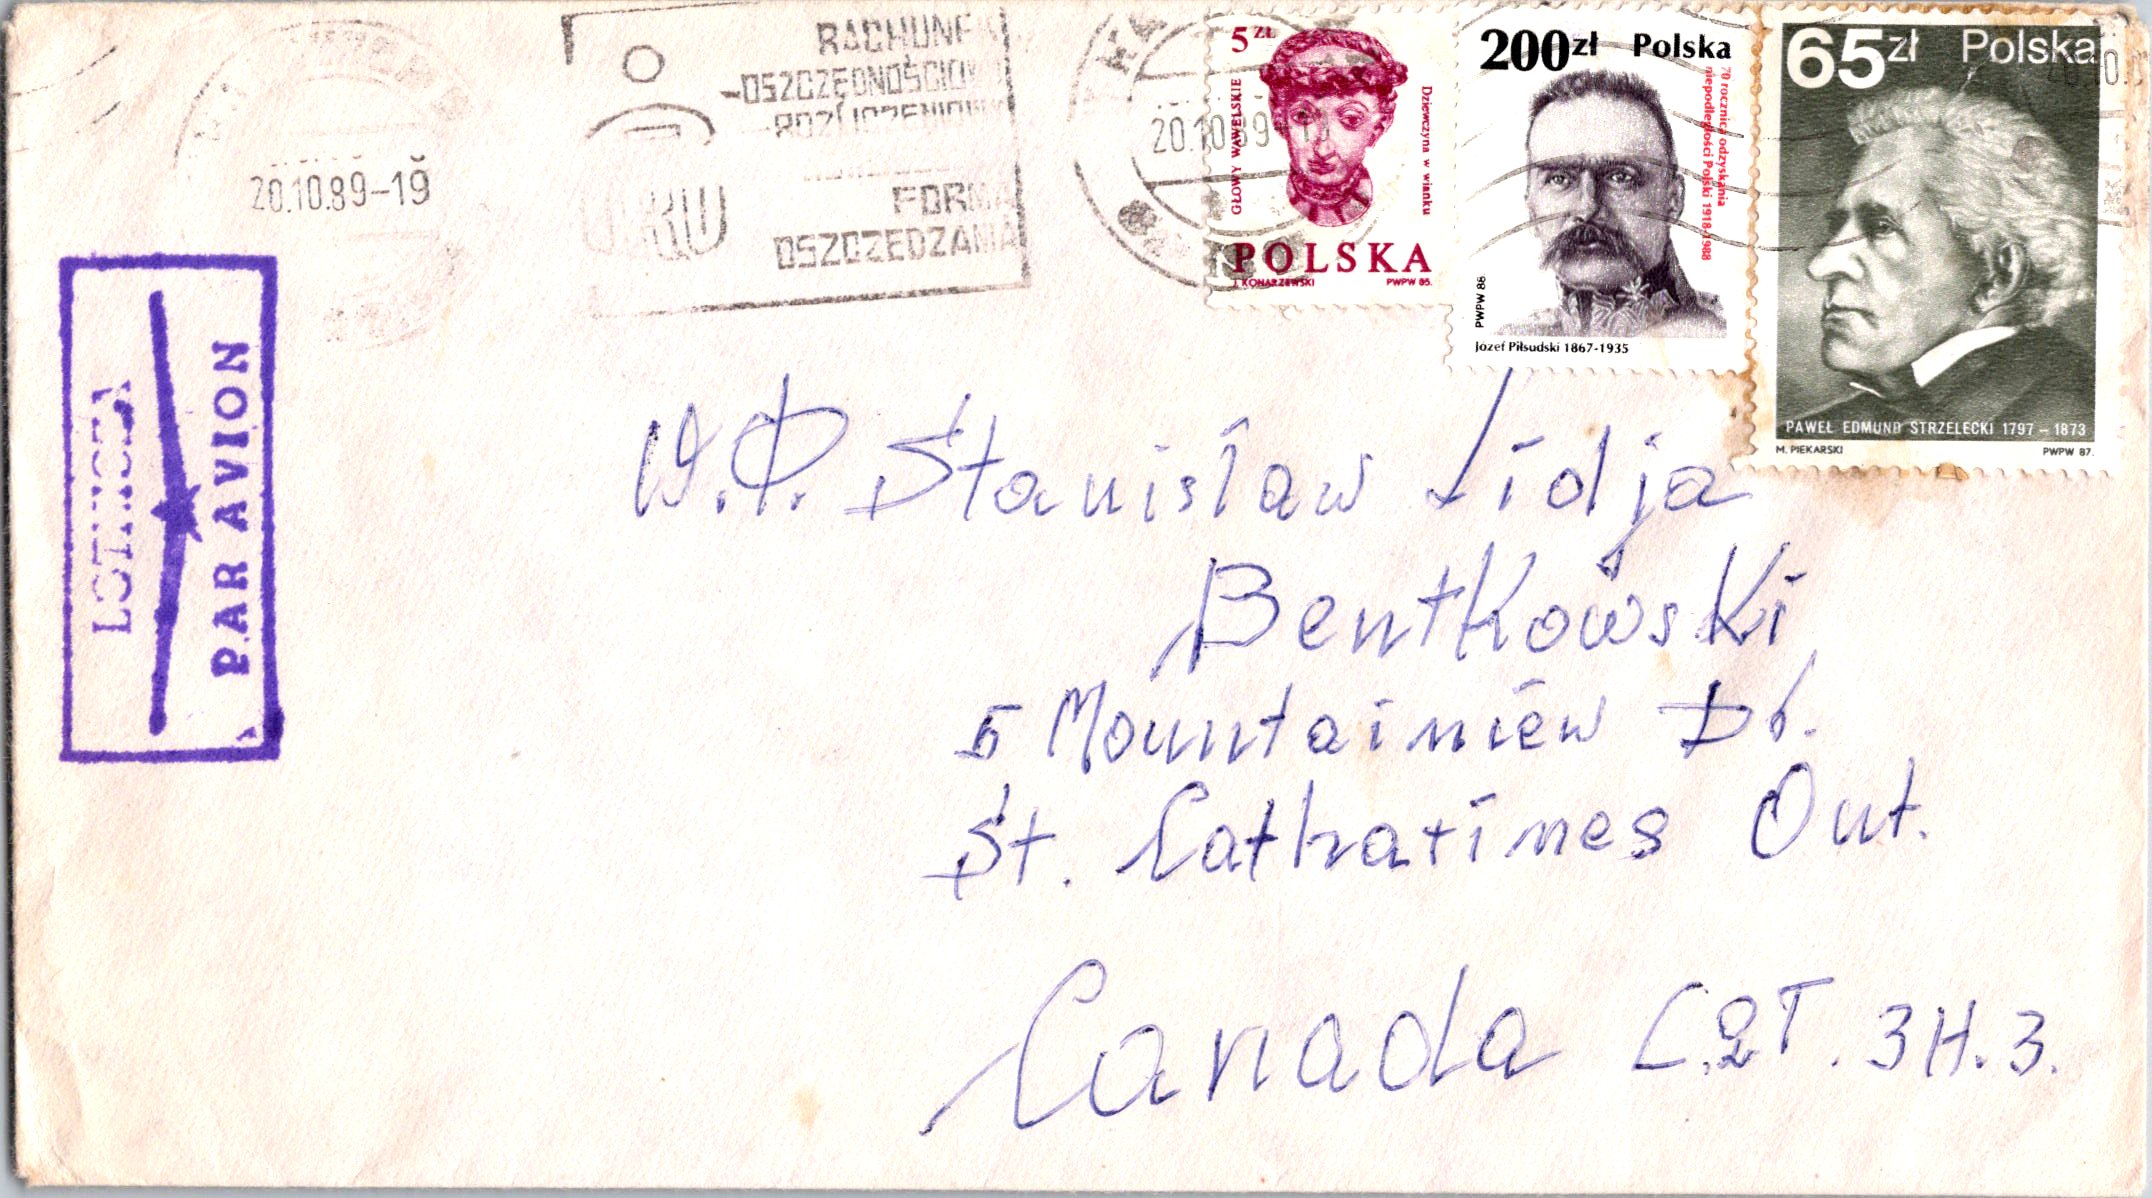 20.10.89-19
RACHUNEK
OSZCZĘDNOŚCIOWO
ROZLICZENIOWY
FORMA
OSZCZĘDZANIA
20.10.89
5 zł
GŁOWY WAWELSKIE
Dziewczyna w wianku
POLSKA
J. KONARZEWSKI PWPW 85.
200zł Polska
70 rocznica odzyskania
niepodległości Polski 1918-1988
PWPW 88
Józef Piłsudski 1867-1935
65zł Polska
PAWEŁ EDMUND STRZELECKI 1797 - 1873
M. PIEKARSKI PWPW 87.
LOTNICZA
PAR AVION
W.P. Stanisław Lidja
Bentkowski
5 Mountainiew Dr.
St. Catharines Ont.
Canada L2T. 3H.3.